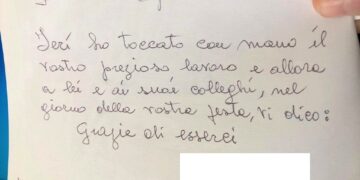 Ieri ho toccato con mano il
vostro prezioso lavoro e allora
a lei e ai suoi colleghi, nel
giorno della vostra festa, vi dico:
Grazie di esserci